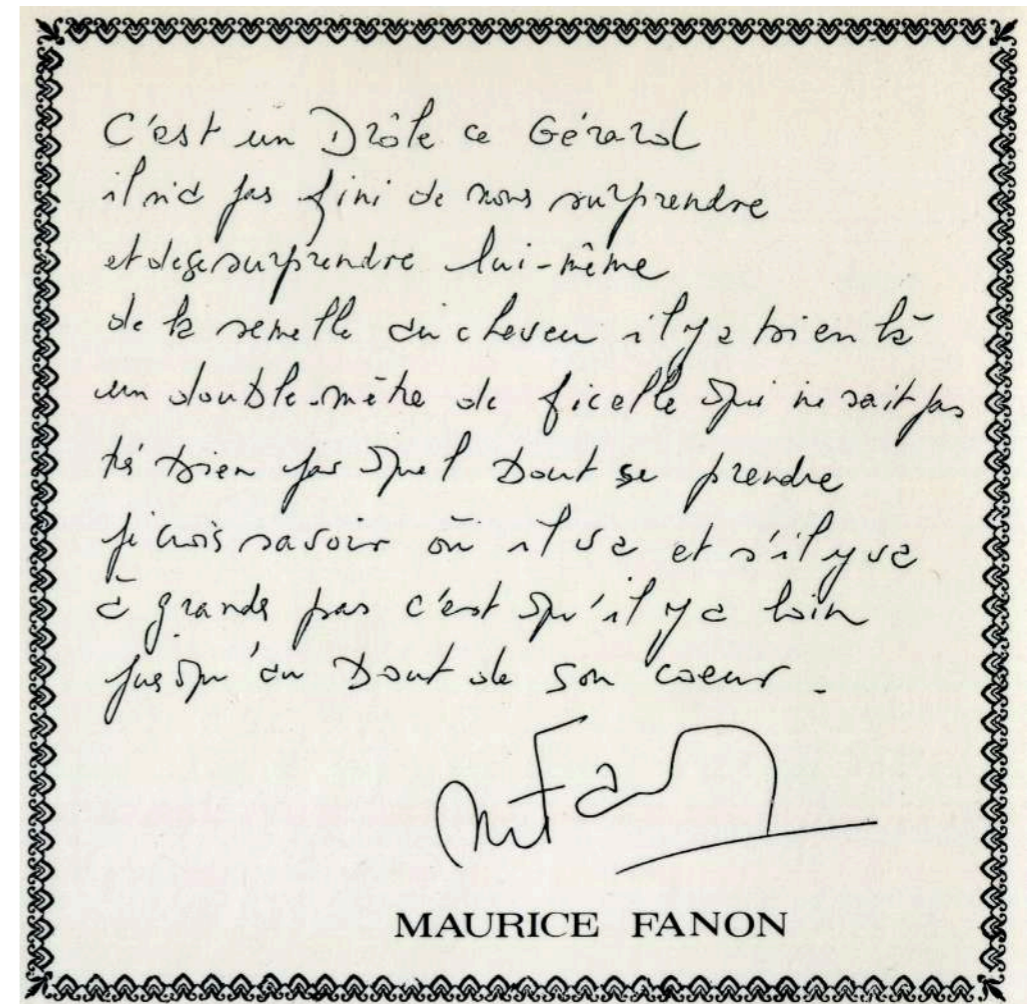 C'est un Drôle ce Gérard
il n'a pas fini de nous surprendre
et de se surprendre lui-même
de la semelle au cheveu il y a bien là
un double-mètre de ficelle qui ne sait pas
très bien par quel bout se prendre
je crois savoir où il va et s'il y va
à grands pas c'est qu'il y a loin
jusqu'au bout de son coeur.
MAURICE FANON